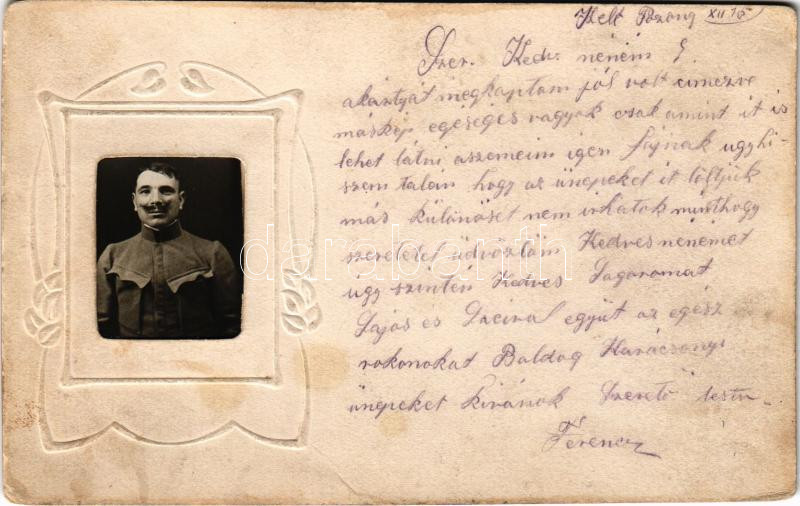 Kelt Pozony XII 15
Szer. Kedv. néném!
akártyát megkaptam jól volt cimezve
máskép egéséges vagyok csak amint it is
lehet látni aszemeim igen fájnak ugy hi-
szem talán hogy az ünepeket it töltjük
más különöset nem irhatok minthogy
szeretetel üdvözlöm Kedves nénémet
úgy szintén Kedves Sógoromat
Lajos és együt az egész
rokonokat Boldog Karácsonyi
ünepeket kivánok Szerető testv.
Ferencz
darabanth